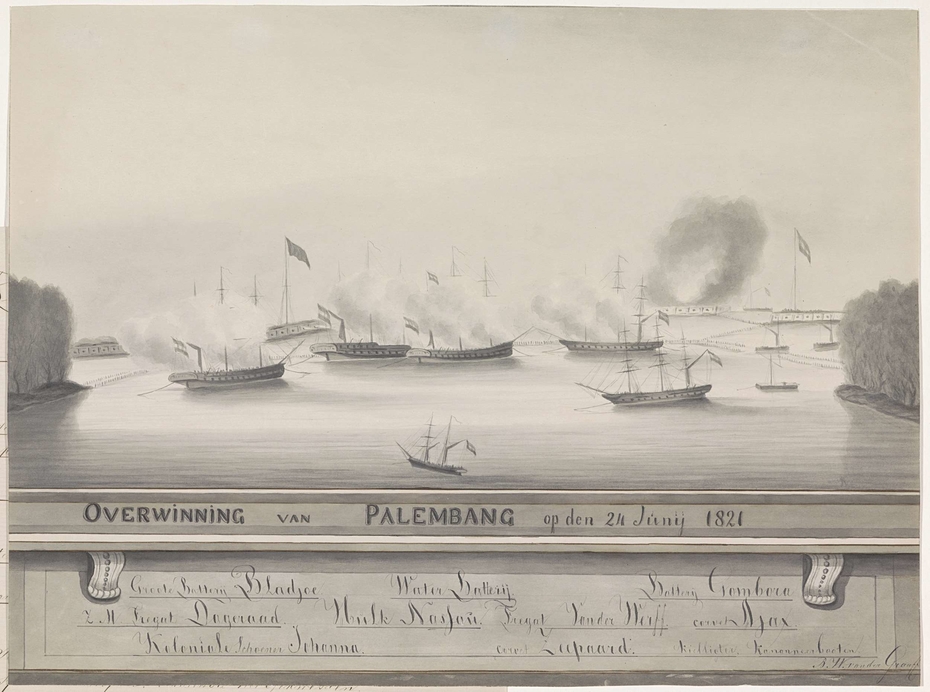 OVERWINNING VAN PALEMBANG op den 24 Junij 1821
Groote Battery Bladjoe Water Battery Battery Gombora
Z. M Fregat Dageraad. Hulk Nassau. Fregat Vander Werff corvet Ajax
Koloniale Schooner Johanna. corvet Zeepaard. Kanonneerbooten